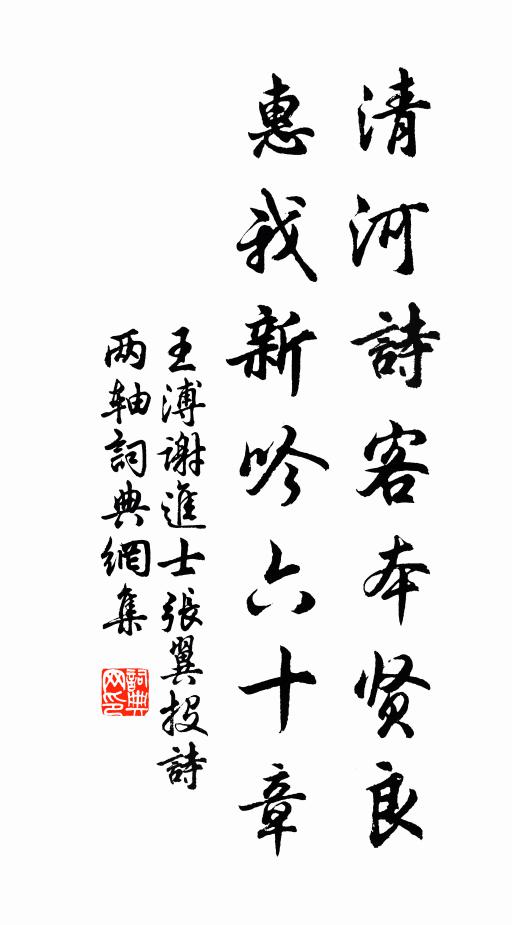 清河詩客本贤良
惠我新吟六十章
王溥谢進士張翼投詩
两轴詞典網集
詞典网印